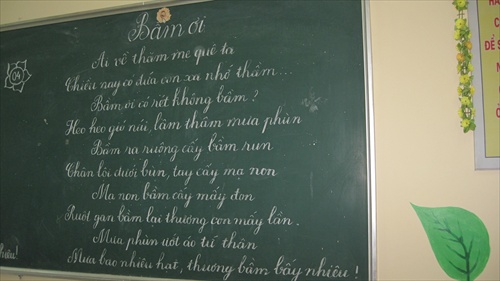 Bầm ơi
04
Ai về thăm mẹ quê ta
Chiều nay có đứa con xa nhớ thầm...
Bầm ơi có rét không bầm?
Heo heo gió núi, lâm thâm mưa phùn
Bầm ra ruộng cấy bầm run
Chân lội dưới bùn, tay cấy mạ non
Mạ non bầm cấy mấy đon
Ruột gan bầm lại thương con mấy lần.
Mưa phùn ướt áo tứ thân
Mưa bao nhiêu hạt, thương bầm bấy nhiêu!